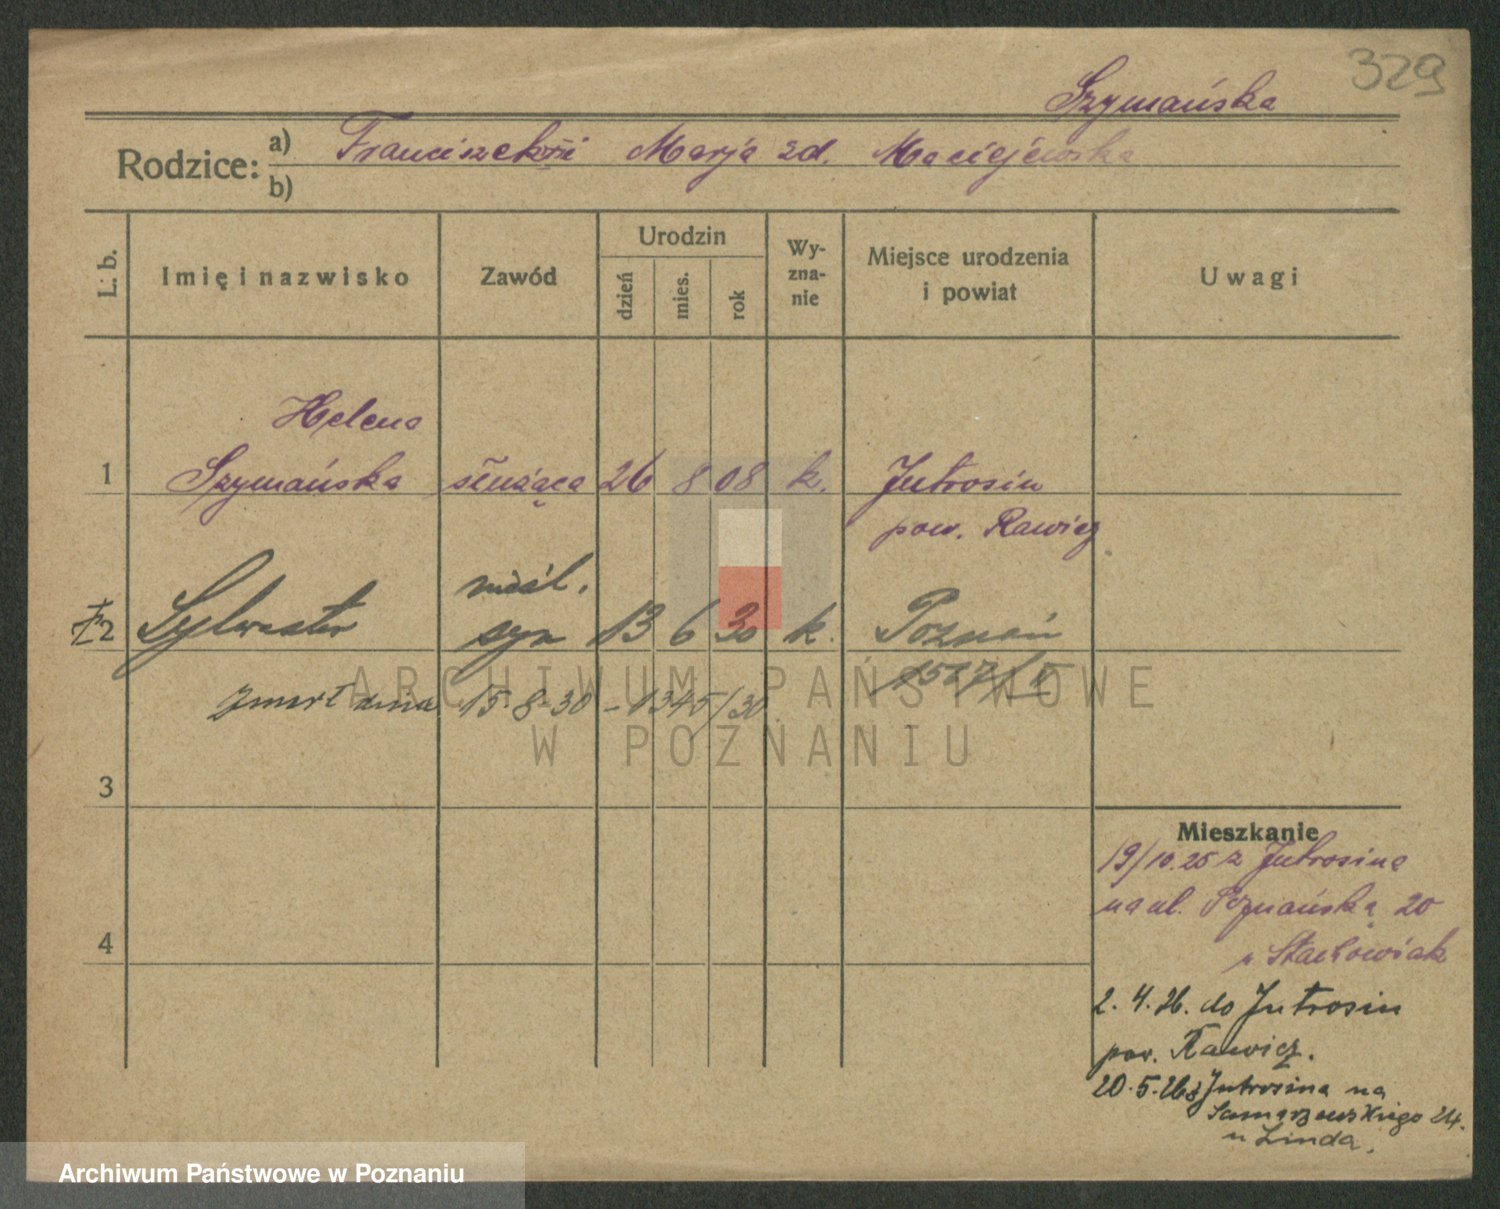 329
Szymańska
Rodzice: a) Franciszek i Marja zd. Maciejewska
b)
L. b. Imię i nazwisko Zawód Urodzin dzień mies. rok Wyznanie Miejsce urodzenia i powiat Uwagi
Helena
1 Szymańska służąca 26 8 08 k. Jutrosin
pow. Rawicz
nieśl.
2 Sylwester syn 13 6 30 k. Poznań
1527/II
zmarł dnia 15.8.30 - 1345/30
ARCHIWUM PAŃSTWOWE
W POZNANIU
3
4
Mieszkanie
19/10.25 z Jutrosina
na ul. Poznańską 20
u Stachowiak
2.4.26. do Jutrosin
pow. Rawicz.
20.5.26 z Jutrosina na
Samarzewskiego 24.
u Linda.
Archiwum Państwowe w Poznaniu